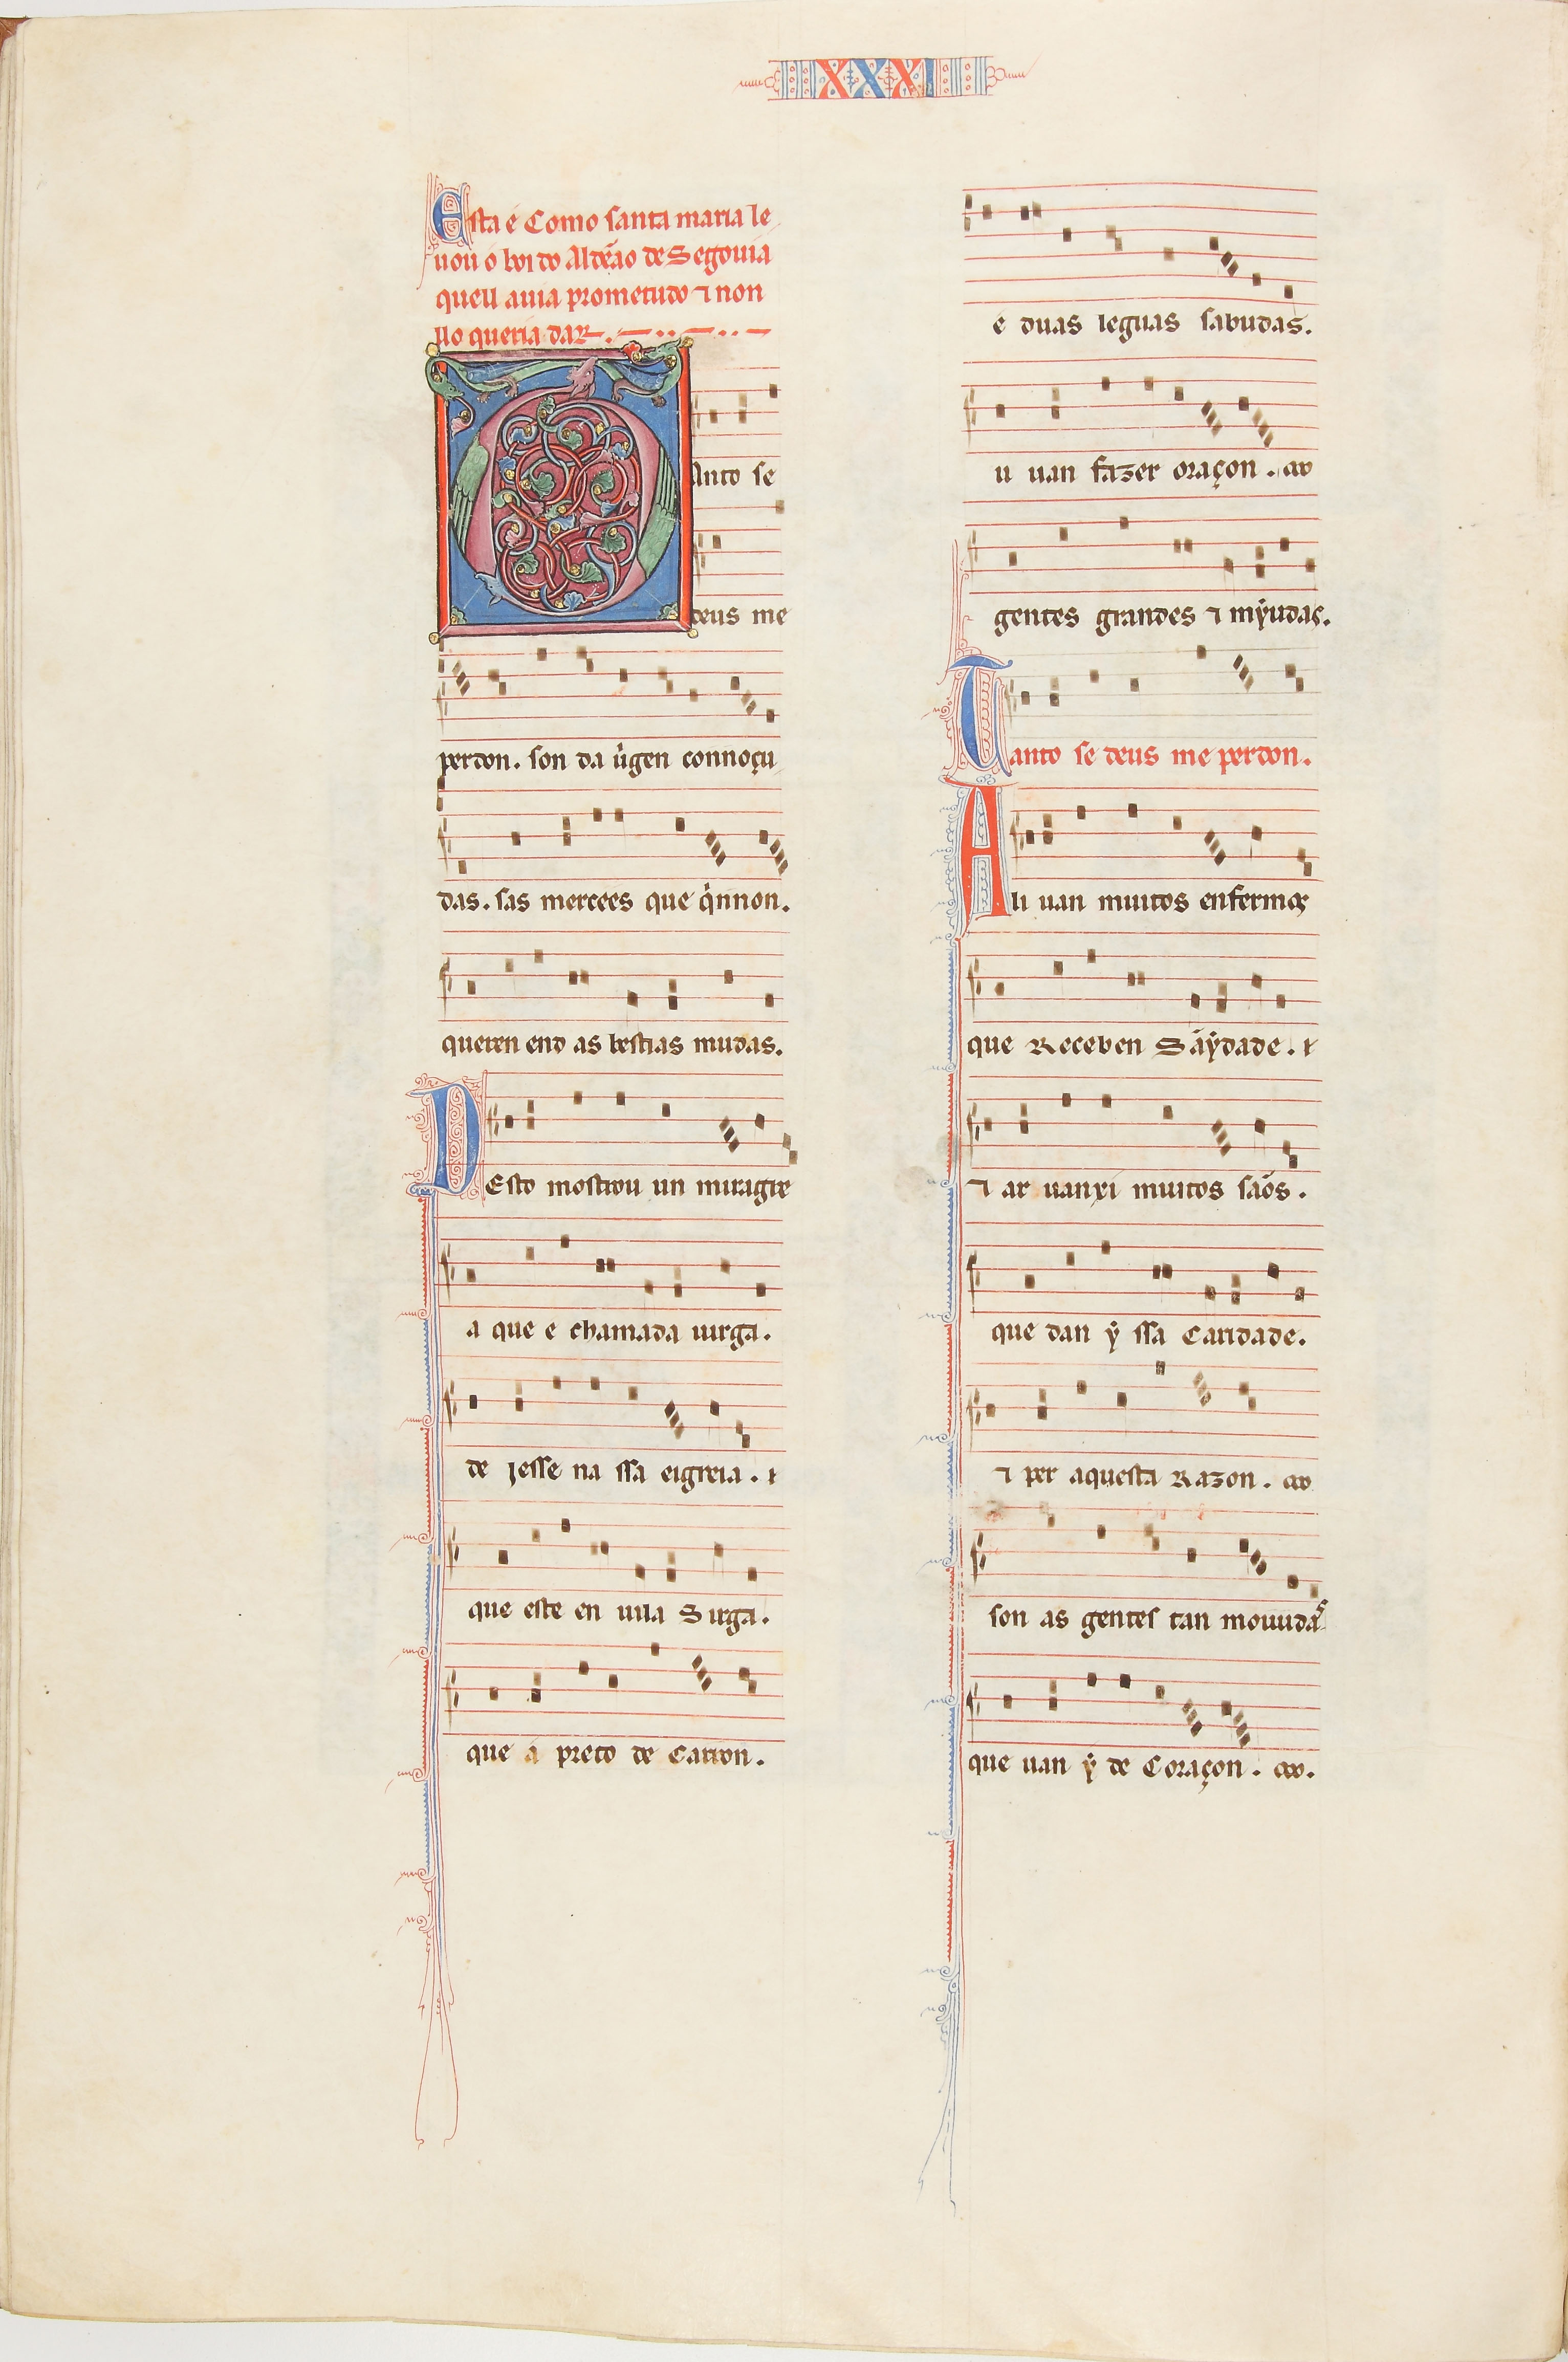 XXXI
Esta é Como santa maria le
uou o boi do Aldẽao de Segouia
quell auia prometudo ⁊ non
llo queria dar.
Tanto se
deus me
perdon. son da uꝩgen connoçu
das. sas mercees que qꝩnnon.
queren end as bestias mudas.
Desto mostrou un miragre
a que e chamada uirga.
de jesse na ssa eigreia.
que este en uila Sirga.
que á preto de Carron.
e duas leguas sabudas.
u uan fazer oraçon.
gentes grandes ⁊ mẏudas.
Tanto se deus me perdon.
Ali uan muitos enfermos
que Receben Sãẏdade.
⁊ ar uanxi muitos sãos.
que dan ẏ ssa Caridade.
⁊ per aquesta Razon.
son as gentes tan mouudas
que uan ẏ de Coraçon.